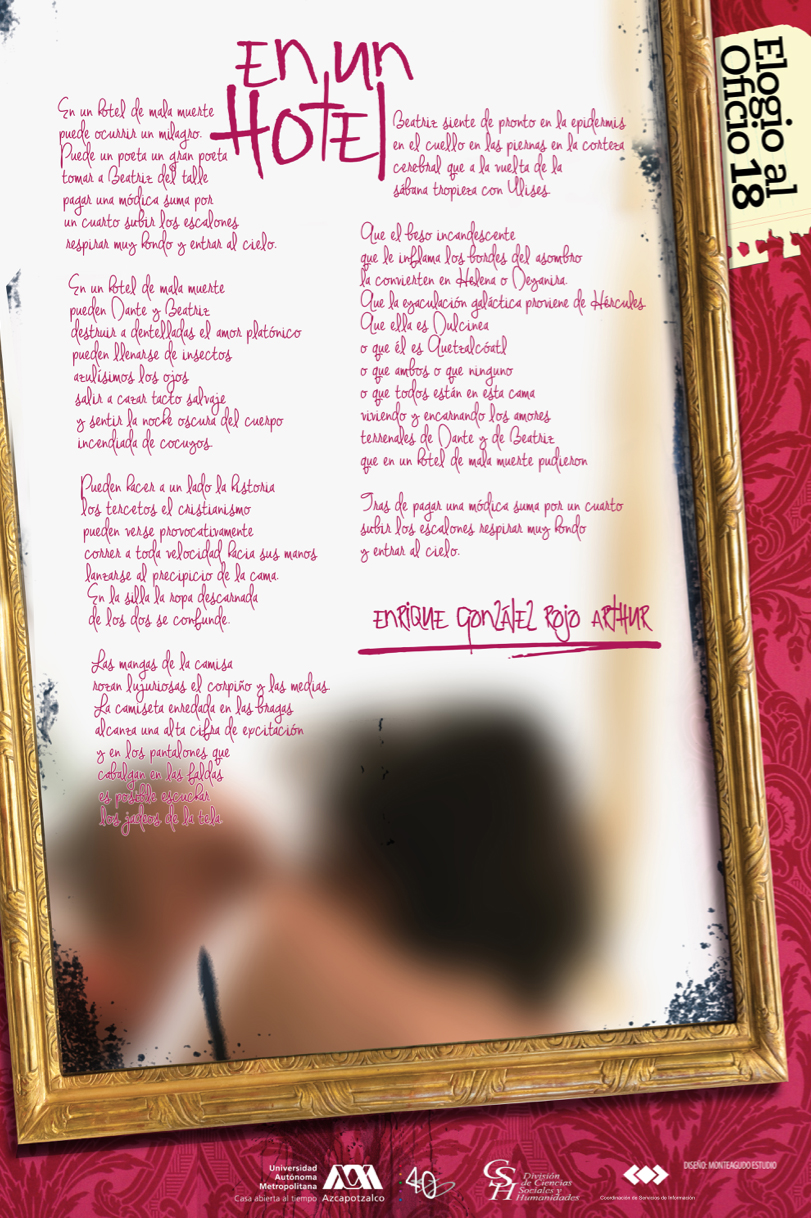 En un
Hotel
En un hotel de mala muerte
puede ocurrir un milagro.
Puede un poeta un gran poeta
tomar a Beatriz del talle
pagar una módica suma por
un cuarto subir los escalones
respirar muy hondo y entrar al cielo.
En un hotel de mala muerte
pueden Dante y Beatriz
destruir a dentelladas el amor platónico
pueden llenarse de insectos
azulísimos los ojos
salir a cazar tacto salvaje
y sentir la noche oscura del cuerpo
incendiada de cocuyos.
Pueden hacer a un lado la historia
los tercetos el cristianismo
pueden verse provocativamente
correr a toda velocidad hacia sus manos
lanzarse al precipicio de la cama.
En la silla la ropa descarnada
de los dos se confunde.
Las mangas de la camisa
rozan lujuriosas el corpiño y las medias.
La camiseta enredada en las bragas
alcanza una alta cifra de excitación
y en los pantalones que
cabalgan en las faldas
es posible escuchar
los jadeos de la tela.
Beatriz siente de pronto en la epidermis
en el cuello en las piernas en la corteza
cerebral que a la vuelta de la
sábana tropieza con Ulises.
Que el beso incandescente
que le inflama los bordes del asombro
la convierten en Helena o Deyanira.
Que la eyaculación galáctica proviene de Hércules
Que ella es Dulcinea
o que él es Quetzalcóatl
o que ambos o que ninguno
o que todos están en esta cama
viviendo y encarnando los amores
terrenales de Dante y de Beatriz
que en un hotel de mala muerte pudieron
Tras de pagar una módica suma por un cuarto
subir los escalones respirar muy hondo
y entrar al cielo.
Enrique González Rojo Arthur
Elogio al
Oficio 18
Universidad
Autónoma
Metropolitana
Casa abierta al tiempo Azcapotzalco
40
CSH
División
de Ciencias
Sociales y
Humanidades
Coordinación de Servicios de Información
DISEÑO: MONTEAGUDO ESTUDIO